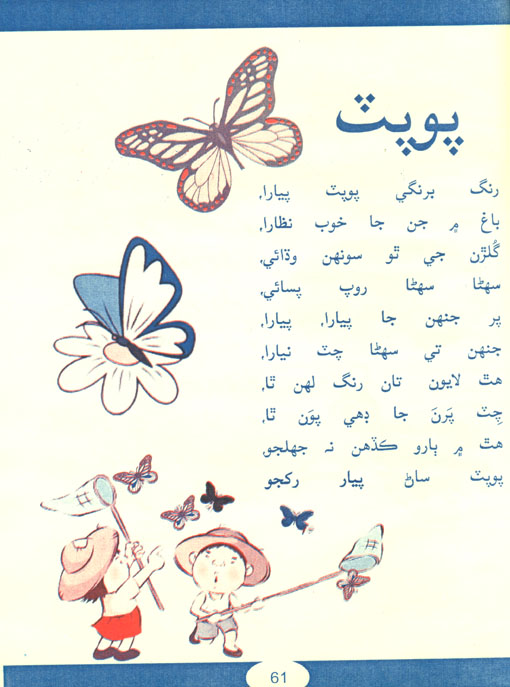 پوپٽ
رنگ برنگي پوپٽ پيارا,
باغ ۾ جن جا خوب نظارا,
گُلڙن جي ٿو سونهن وڌائي,
سهڻا سهڻا روپ پسائي,
پر جنهن جا پيارا, پيارا,
جنهن تي سهڻا چٽ نيارا,
هٿ لايون تان رنگ لهن ٿا,
چِٽ پَرنَ جا ڊهي پوَن ٿا,
هٿ ۾ ٻارو ڪڏهن نہ جهلجو,
پوپٽ ساڻ پيار رکجو
61